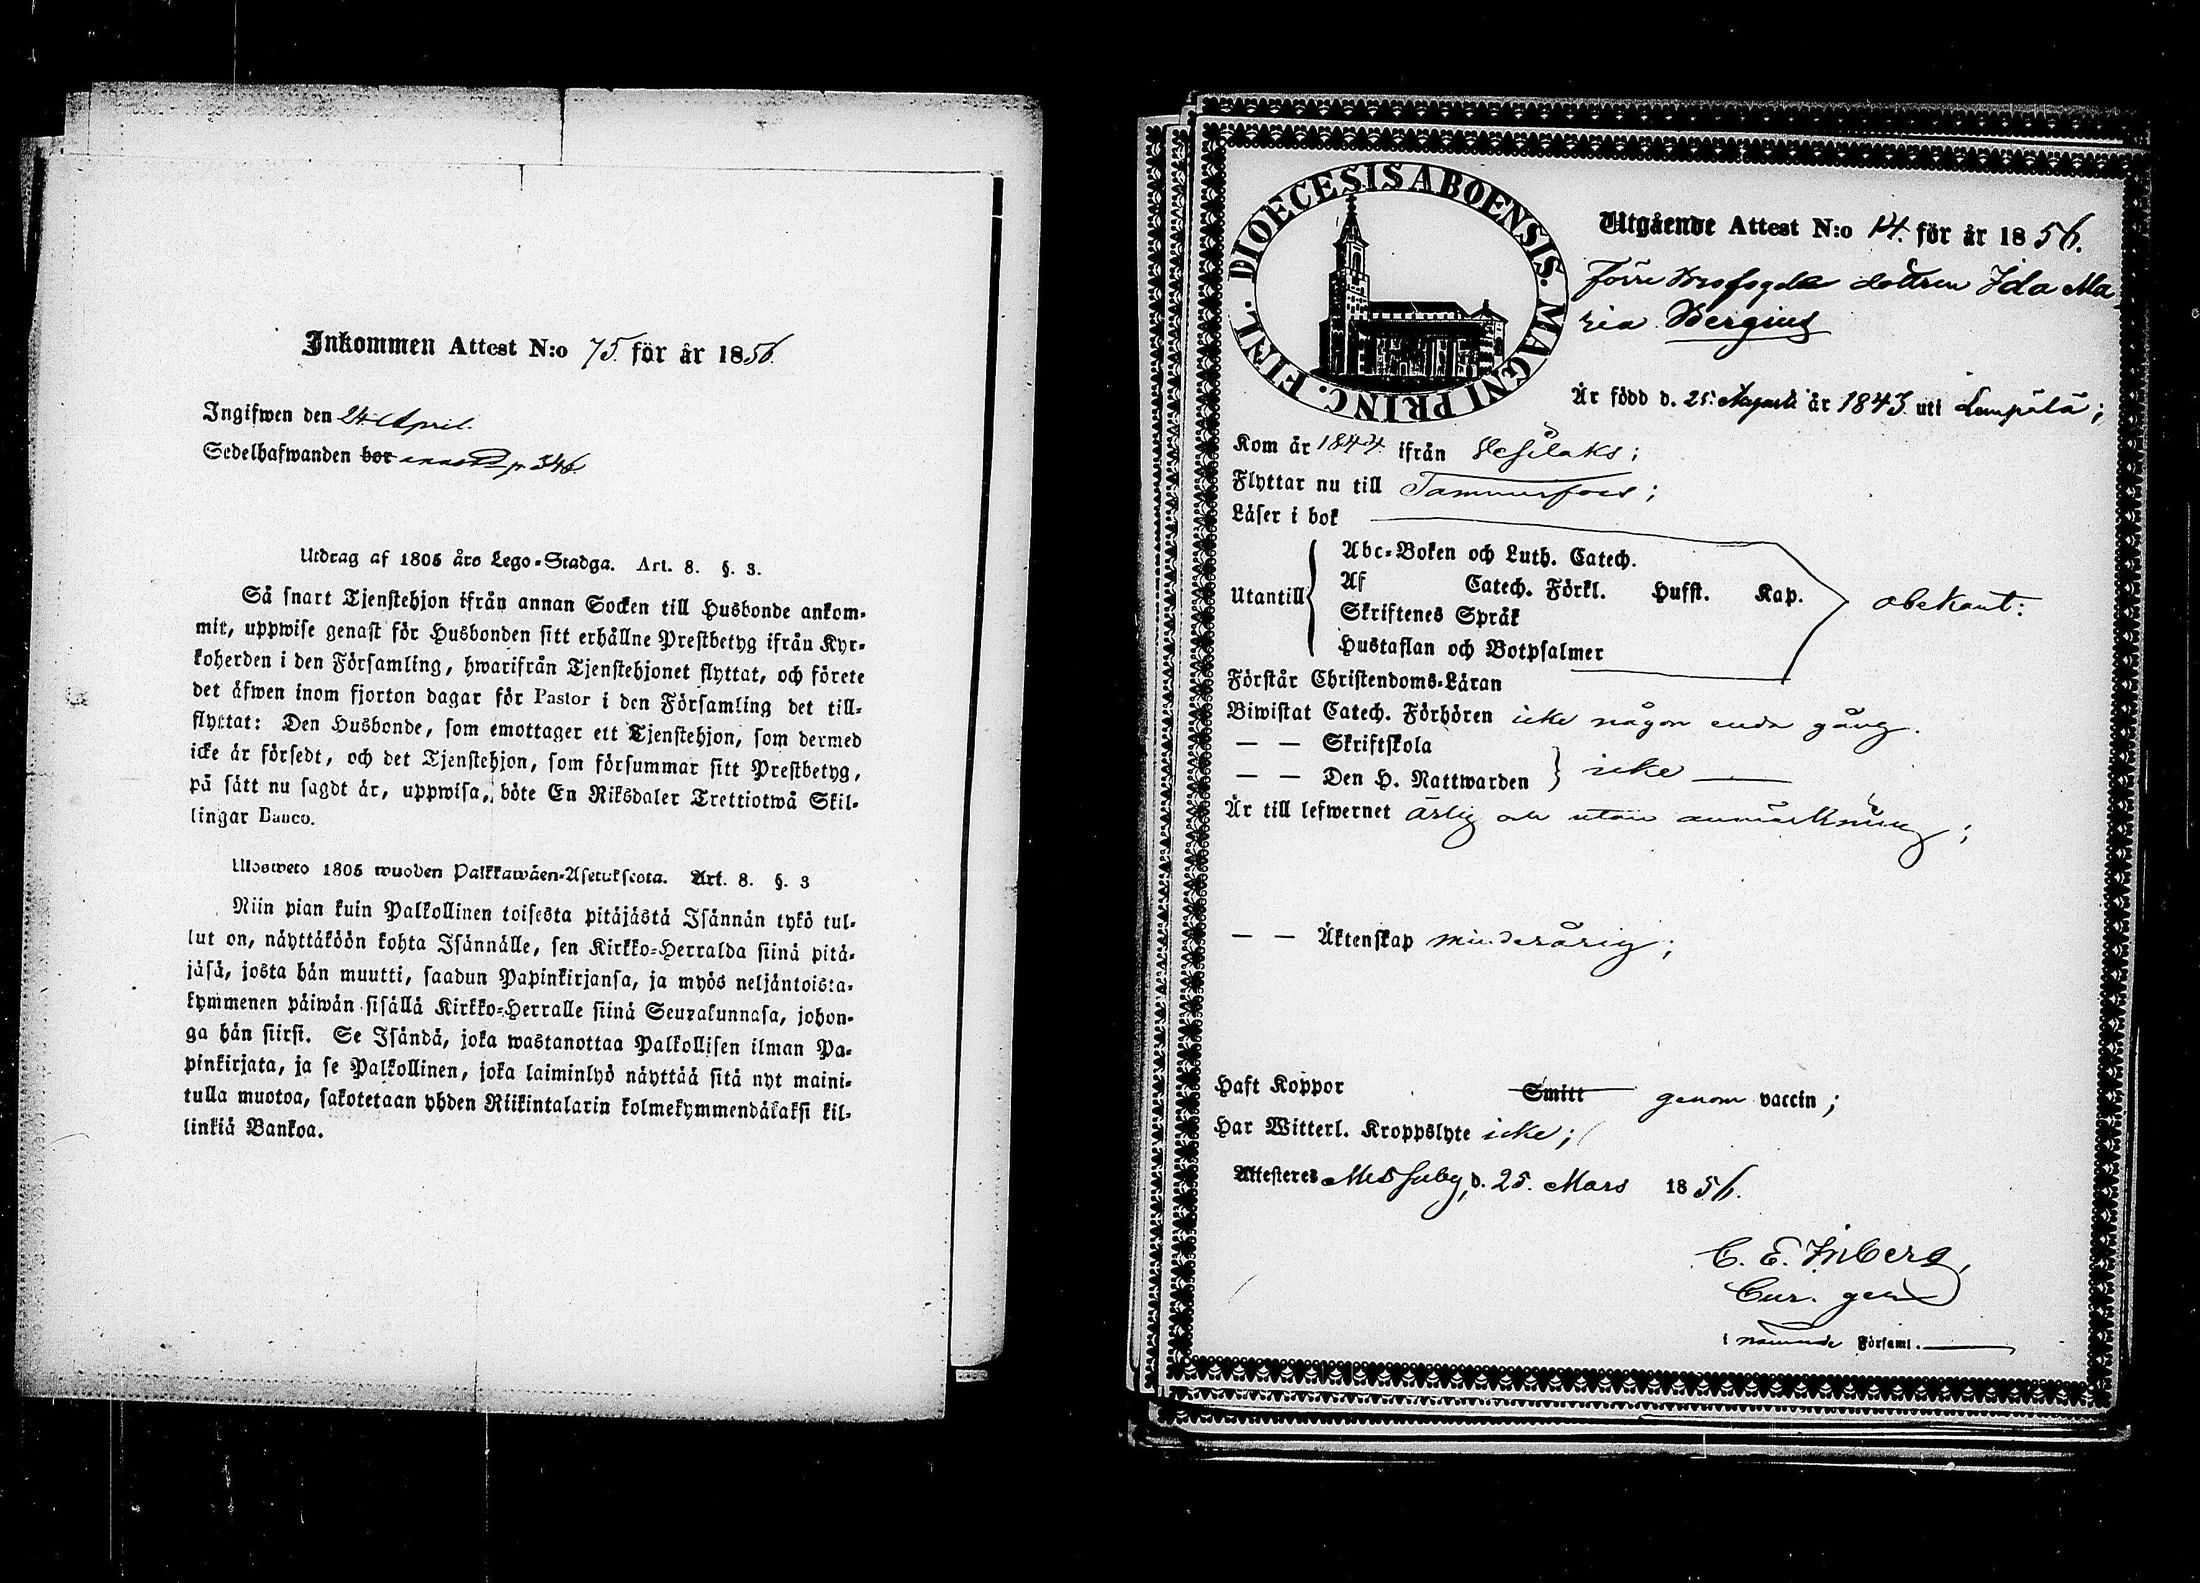 Inkommen Attest N:o 75. för år 1856.
Ingifwen den 24 April.
Sedelhafwanden bor p 346.
Utdrag af 1805 års Lego-Stadga. Art. 8. §. 3.
Så snart Tjenstehjon ifrån annan Socken till Husbonde ankom-
mit, uppwise genast för Husbonden sitt erhållne Prestbetyg ifrån Kyr-
koherden i den Församling, hwarifrån Tjenstehjonet flyttat, och förete
det äfwen inom fjorton dagar för Pastor i den Församling det till-
flyttat: Den Husbonde, som emottager ett Tjenstehjon, som dermed
icke är försedt, och det Tjenstehjon, som försummar sitt Prestbetyg,
på sätt nu sagdt är, uppwisa, böte En Riksdaler Trettiotwå Skil-
lingar Banco.
Ulosweto 1805 wuoden Palkkawäen-Asetuksesta. Art. 8. §. 3
Niin pian kuin Palkollinen toisesta pitäjästä Isännän tykö tul-
lut on, näyttäköön kohta Isännälle, sen Kirkko-Herralda siinä pitä-
jäsä, josta hän muutti, saadun Papinkirjansa, ja myös neljäntoista-
kymmenen päiwän sisällä Kirkko-Herralle siinä Seurakunnasa, johon-
ga hän siirsi. Se Isändä, joka wastanottaa Palkollisen ilman Pa-
pinkirjata, ja se Palkollinen, joka laiminlyö näyttää sitä nyt maini-
tulla muotoa, sakotetaan yhden Riikintalarin kolmekymmendäkaksi kil-
linkiä Bankoa.
DIOECESIS ABOENSIS. MAGNI PRINC. FINL.
Utgående Attest N:o 14. för år 1856.
Förre dottren Ida Ma
ria Bergius
Är född d. 25. Augusti år 1843. uti Lempälä;
Kom år 1844 ifrån Vesilaks;
Flyttar nu till Tammerfors;
Läser i bok
Utantill
Abc-Boken och Luth. Catech.
Af Catech. Förkl. Husst. Kap.
Skriftenes Språk
Hustaflan och Botpsalmer
obekant:
Förstår Christendoms-Läran
Biwistat Catech. Förhören icke någon enda gång.
— — Skriftskola
— — Den H. Nattwarden } icke
Är till lefwernet ärlig och utan anmärkning;
— — Äktenskap minderårig;
Haft Koppor Smitt genom vaccin;
Har Witterl. Kroppslyte icke;
Attesteres Messuby, d. 25. Mars 1856.
C. E. Inberg,
Cur. ger
i nämnde Församl.